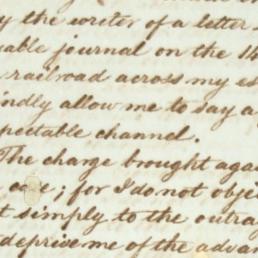 by the writer of a letter
able journal on the 14
railroad across my es
indly allow me to say a f
pectable channel.
The charge brought agai
for I do not obje
t simply to the outra
deprive me of the advan